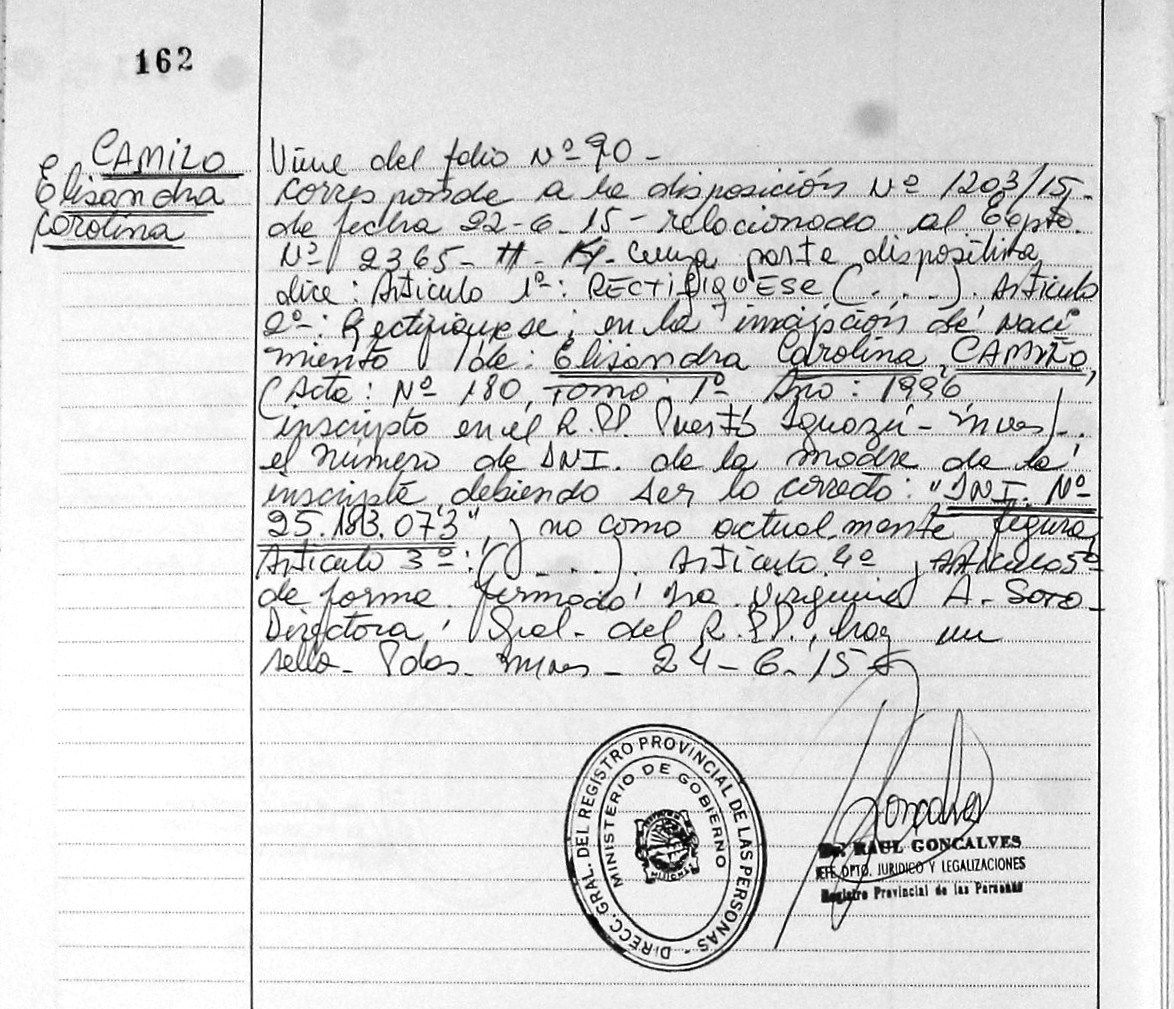 162
CAMILO
Elisandra
Carolina
Viene del folio Nº 90 -
Corresponde a la disposición Nº 1203/15,-
de fecha 22-6-15 - relacionado al Expte.
Nº 2365- H - Cuya parte dispositiva
dice: Artículo 1º: RECTIFIQUESE (....). Artículo
2º-: Rectifiquese, en la inscipción de Naci
miento de: Elisandra Carolina CAMILO,
(Acta: Nº 180, Tomo: 1º Año: 1996,
inscripto en el R.PP. Puerto Iguazú - Mnes).
el número de DNI. de la madre de la
inscripta debiendo ser lo correcto: "DNI. Nº
25.183.073", y no como actualmente figura,
Artículo 3º: (...). Artículo 4º y Artículo 5º
de forma. firmado Dra Virginia A. Soto-
Directora Gral. del R.PP., hay un
sello- Pdas. Mnes - 24-6-15
DIRECC. GRAL. DEL REGISTRO PROVINCIAL DE LAS PERSONAS -
MINISTERIO DE GOBIERNO
MISIONES
Goncalves
Dr. RAUL GONCALVES
JEFE DPTO. JURIDICO Y LEGALIZACIONES
Registro Provincial de las Personas